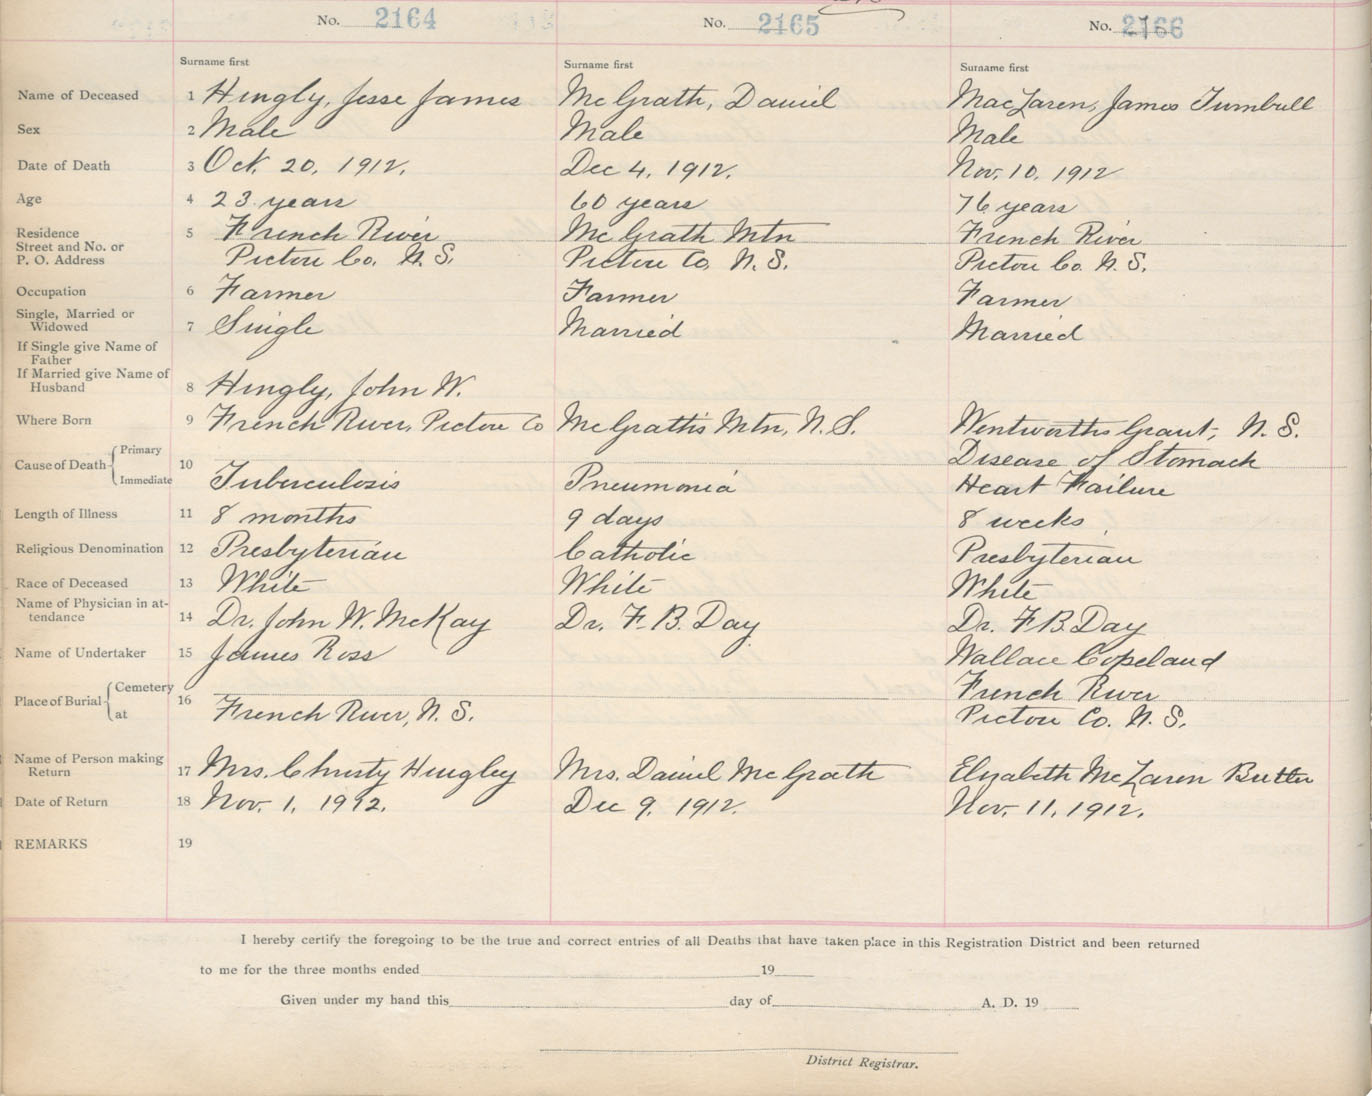 No. 2164 No. 2165 No. 2166
Surname first Surname first Surname first
Name of Deceased 1 Hingly, Jesse James McGrath, Daniel MacLaren, James Turnbull
Sex 2 Male Male Male
Date of Death 3 Oct. 20, 1912. Dec 4, 1912. Nov. 10, 1912
Age 4 23 years 60 years 76 years
Residence 5 French River McGrath Mtn French River
Street and No. or
P. O. Address Pictou Co. N. S. Pictou Co. N. S. Pictou Co. N. S.
Occupation 6 Farmer Farmer Farmer
Single, Married or
Widowed 7 Single Married Married
If Single give Name of
Father
If Married give Name of
Husband 8 Hingly, John W.
Where Born 9 French River, Pictou Co McGrath's Mtn, N. S. Wentworths Grant, N. S.
Cause of Death Primary 10 Disease of Stomach
Immediate Tuberculosis Pneumonia Heart Failure
Length of Illness 11 8 months 9 days 8 weeks
Religious Denomination 12 Presbyterian Catholic Presbyterian
Race of Deceased 13 White White White
Name of Physician in at-
tendance 14 Dr. John W. McKay Dr. F. B. Day Dr. F B. Day
Name of Undertaker 15 James Ross Wallace Copeland
Place of Burial Cemetery 16 French River
at French River, N. S. Pictou Co. N. S.
Name of Person making
Return 17 Mrs. Christy Hingley Mrs. Daniel McGrath Elizabeth McLaren Butler
Date of Return 18 Nov. 1, 1912. Dec 9, 1912. Nov. 11, 1912.
REMARKS 19
I hereby certify the foregoing to be the true and correct entries of all Deaths that have taken place in this Registration District and been returned
to me for the three months ended 19
Given under my hand this day of A. D. 19
District Registrar.